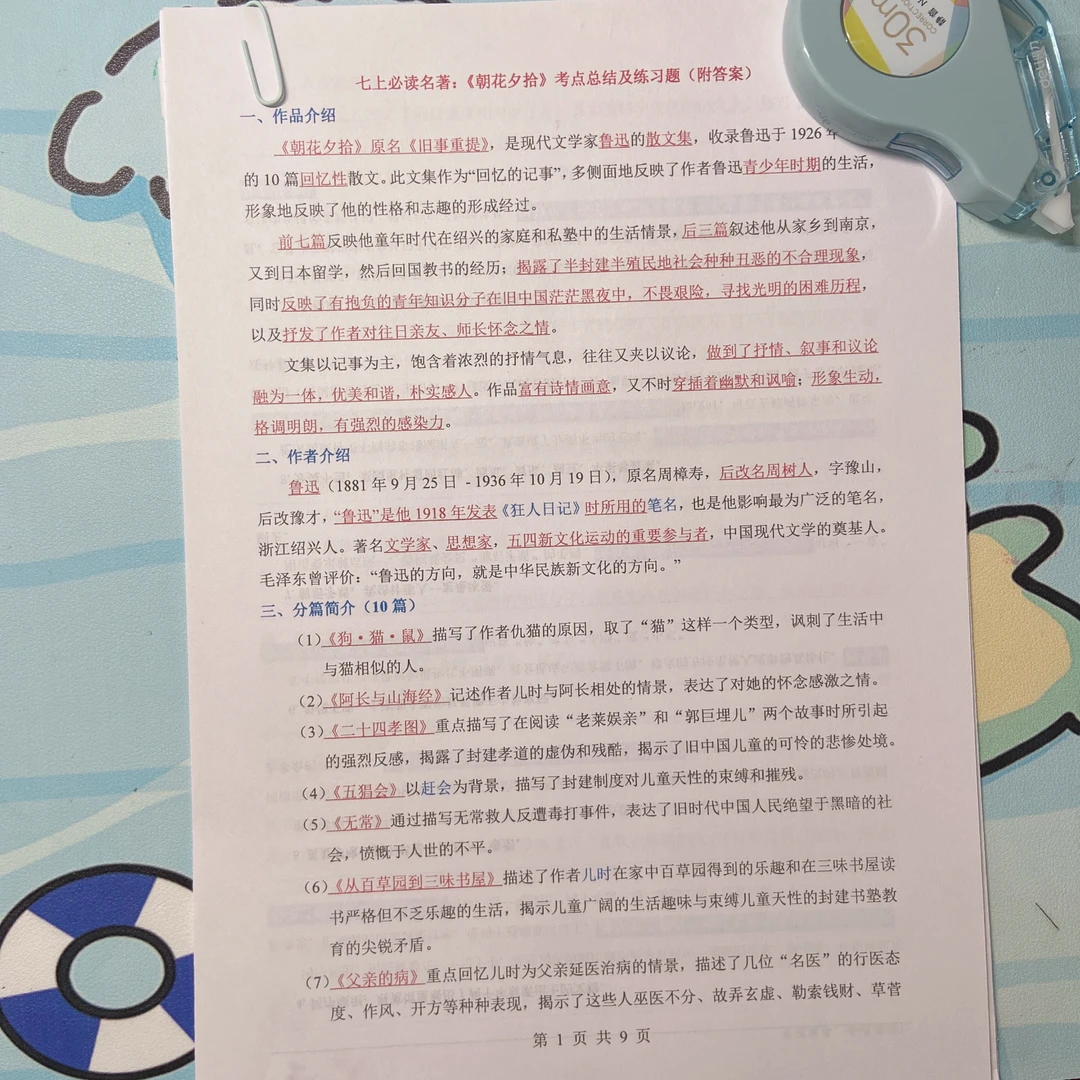 七上必读名著：《朝花夕拾》考点总结及练习题（附答案）
一、作品介绍
《朝花夕拾》原名《旧事重提》，是现代文学家鲁迅的散文集，收录鲁迅于 1926 年
的 10 篇回忆性散文。此文集作为“回忆的记事”，多侧面地反映了作者鲁迅青少年时期的生活，
形象地反映了他的性格和志趣的形成经过。
前七篇反映他童年时代在绍兴的家庭和私塾中的生活情景，后三篇叙述他从家乡到南京，
又到日本留学，然后回国教书的经历；揭露了半封建半殖民地社会种种丑恶的不合理现象，
同时反映了有抱负的青年知识分子在旧中国茫茫黑夜中，不畏艰险，寻找光明的困难历程，
以及抒发了作者对往日亲友、师长怀念之情。
文集以记事为主，饱含着浓烈的抒情气息，往往又夹以议论，做到了抒情、叙事和议论
融为一体，优美和谐，朴实感人。作品富有诗情画意，又不时穿插着幽默和讽喻；形象生动，
格调明朗，有强烈的感染力。
二、作者介绍
鲁迅（1881 年 9 月 25 日 - 1936 年 10 月 19 日），原名周樟寿，后改名周树人，字豫山，
后改豫才，“鲁迅”是他 1918 年发表《狂人日记》时所用的笔名，也是他影响最为广泛的笔名，
浙江绍兴人。著名文学家、思想家，五四新文化运动的重要参与者，中国现代文学的奠基人。
毛泽东曾评价：“鲁迅的方向，就是中华民族新文化的方向。”
三、分篇简介（10 篇）
（1）《狗·猫·鼠》描写了作者仇猫的原因，取了“猫”这样一个类型，讽刺了生活中
与猫相似的人。
（2）《阿长与山海经》记述作者儿时与阿长相处的情景，表达了对她的怀念感激之情。
（3）《二十四孝图》重点描写了在阅读“老莱娱亲”和“郭巨埋儿”两个故事时所引起
的强烈反感，揭露了封建孝道的虚伪和残酷，揭示了旧中国儿童的可怜的悲惨处境。
（4）《五猖会》以赶会为背景，描写了封建制度对儿童天性的束缚和摧残。
（5）《无常》通过描写无常救人反遭毒打事件，表达了旧时代中国人民绝望于黑暗的社
会，愤慨于人世的不平。
（6）《从百草园到三味书屋》描述了作者儿时在家中百草园得到的乐趣和在三味书屋读
书严格但不乏乐趣的生活，揭示儿童广阔的生活趣味与束缚儿童天性的封建书塾教
育的尖锐矛盾。
（7）《父亲的病》重点回忆儿时为父亲延医治病的情景，描述了几位“名医”的行医态
度、作风、开方等种种表现，揭示了这些人巫医不分、故弄玄虚、勒索钱财、草菅
第 1 页 共 9 页
30m
CORRECTION
静音